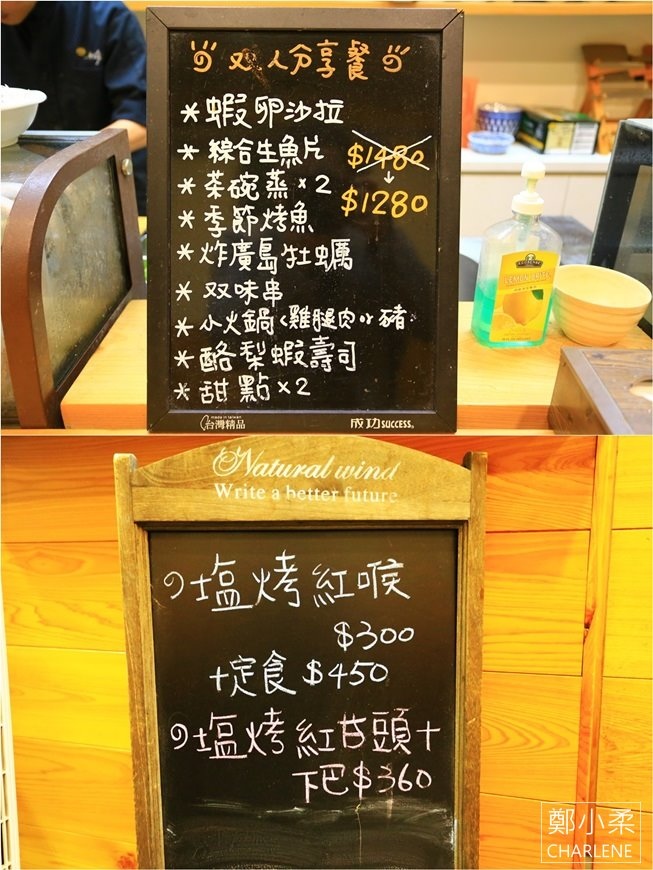 双人分享餐
*蝦卵沙拉
*綜合生魚片
$1480
↓
*茶碗蒸×2
$1280
*季節烤魚
*炸廣島牡蠣
*双味串
*小火鍋(雞腿肉or豬
*酪梨蝦壽司
*甜點×2
made in taiwan
台灣精品
成功SUCCESS®
Natural wind
Write a better future
塩烤紅喉
$300
+定食 $450
塩烤紅甘頭+
下巴$360
鄭小柔
CHARLENE